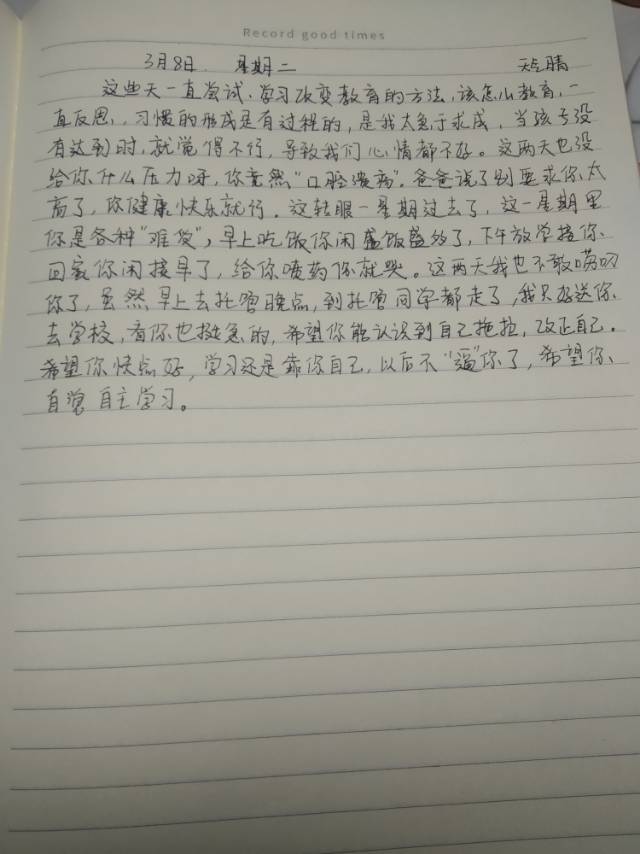 Record good times
3月8日 星期二 天气晴
这些天一直尝试、学习改变教育的方法,该怎么教育,一
直反思,习惯的形成是有过程的,是我太急于求成,当孩子没
有达到时,就觉得不行,导致我们心情都不好。这两天也没
给你什么压力呀,你竟然“口腔溃疡”。爸爸说了别要求你太
高了,你健康快乐就行。这转眼一星期过去了,这一星期里
你是各种“难受”,早上吃饭你闲盛饭盛的了,下午放学接你、
回家你闲接早了,给你喷药你就哭。这两天我也不敢唠叨
你了,虽然早上去托管晚点,到托管同学都走了,我只好送你
去学校,看你也挺急的,希望你能认识到自己拖拉,改正自己。
希望你快点好,学习还是靠你自己,以后不“逼”你了,希望你
自觉自主学习。